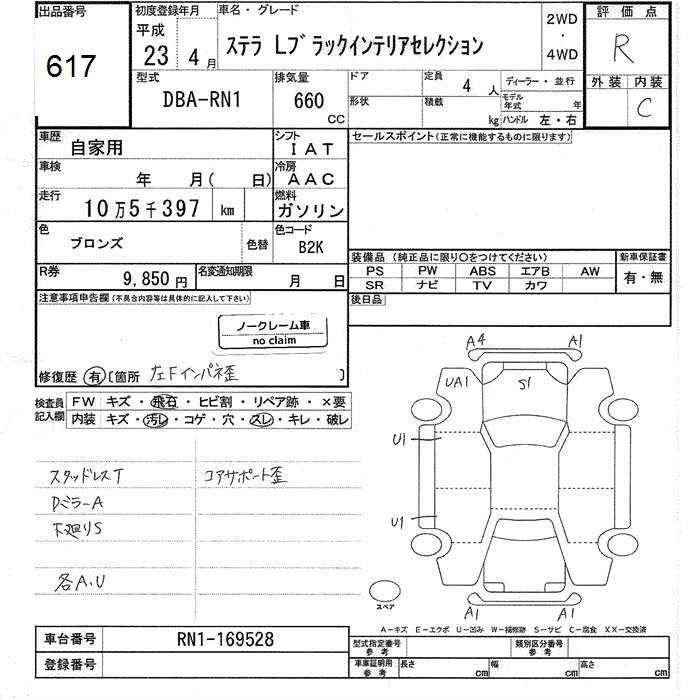 出品番号
617
初度登録年月
平成
23 4月
車名・グレード
ステラ Lブラックインテリアセレクション
2WD
・
4WD
評価点
R
外装 内装
C
型式
DBA-RN1
排気量
660
CC
ドア
形状
定員
4 人
積載
kg
ディーラー・並行
モデル年式 年
ハンドル 左・右
車歴
自家用
シフト
IAT
車検
年 月( 日)
冷房
AAC
走行
10万5千397 km
燃料
ガソリン
色
ブロンズ
色替
色コード
B2K
R券
9,850円
名変通知期限
月 日
セールスポイント(正常に機能するものに限ります)
装備品 (純正品に限り○をつけてください)
PS PW ABS エアB AW
SR ナビ TV カワ
新車保証書
有・無
後日品
注意事項申告欄(不具合内容等は具体的に記入して下さい)
ノークレーム車
no claim
修復歴 有 [箇所 左Fインパネ歪 ]
検査員記入欄
FW キズ・飛石・ヒビ割・リペア跡・×要
内装 キズ・汚レ・コゲ・穴・スレ・キレ・破レ
スタッドレスT
コアサポート歪
DミラーA
下廻りS
各A.U
A4 A1
UA1 S1
U1
U1
A1 A1
スペア
A―キズ E―エクボ U―凹み W―補修跡 S―サビ C―腐食 XX―交換済
車台番号
RN1-169528
登録番号
型式指定番号
参考
類別区分番号
参考
車庫証明用
参考
長さ cm
幅 cm
高さ cm